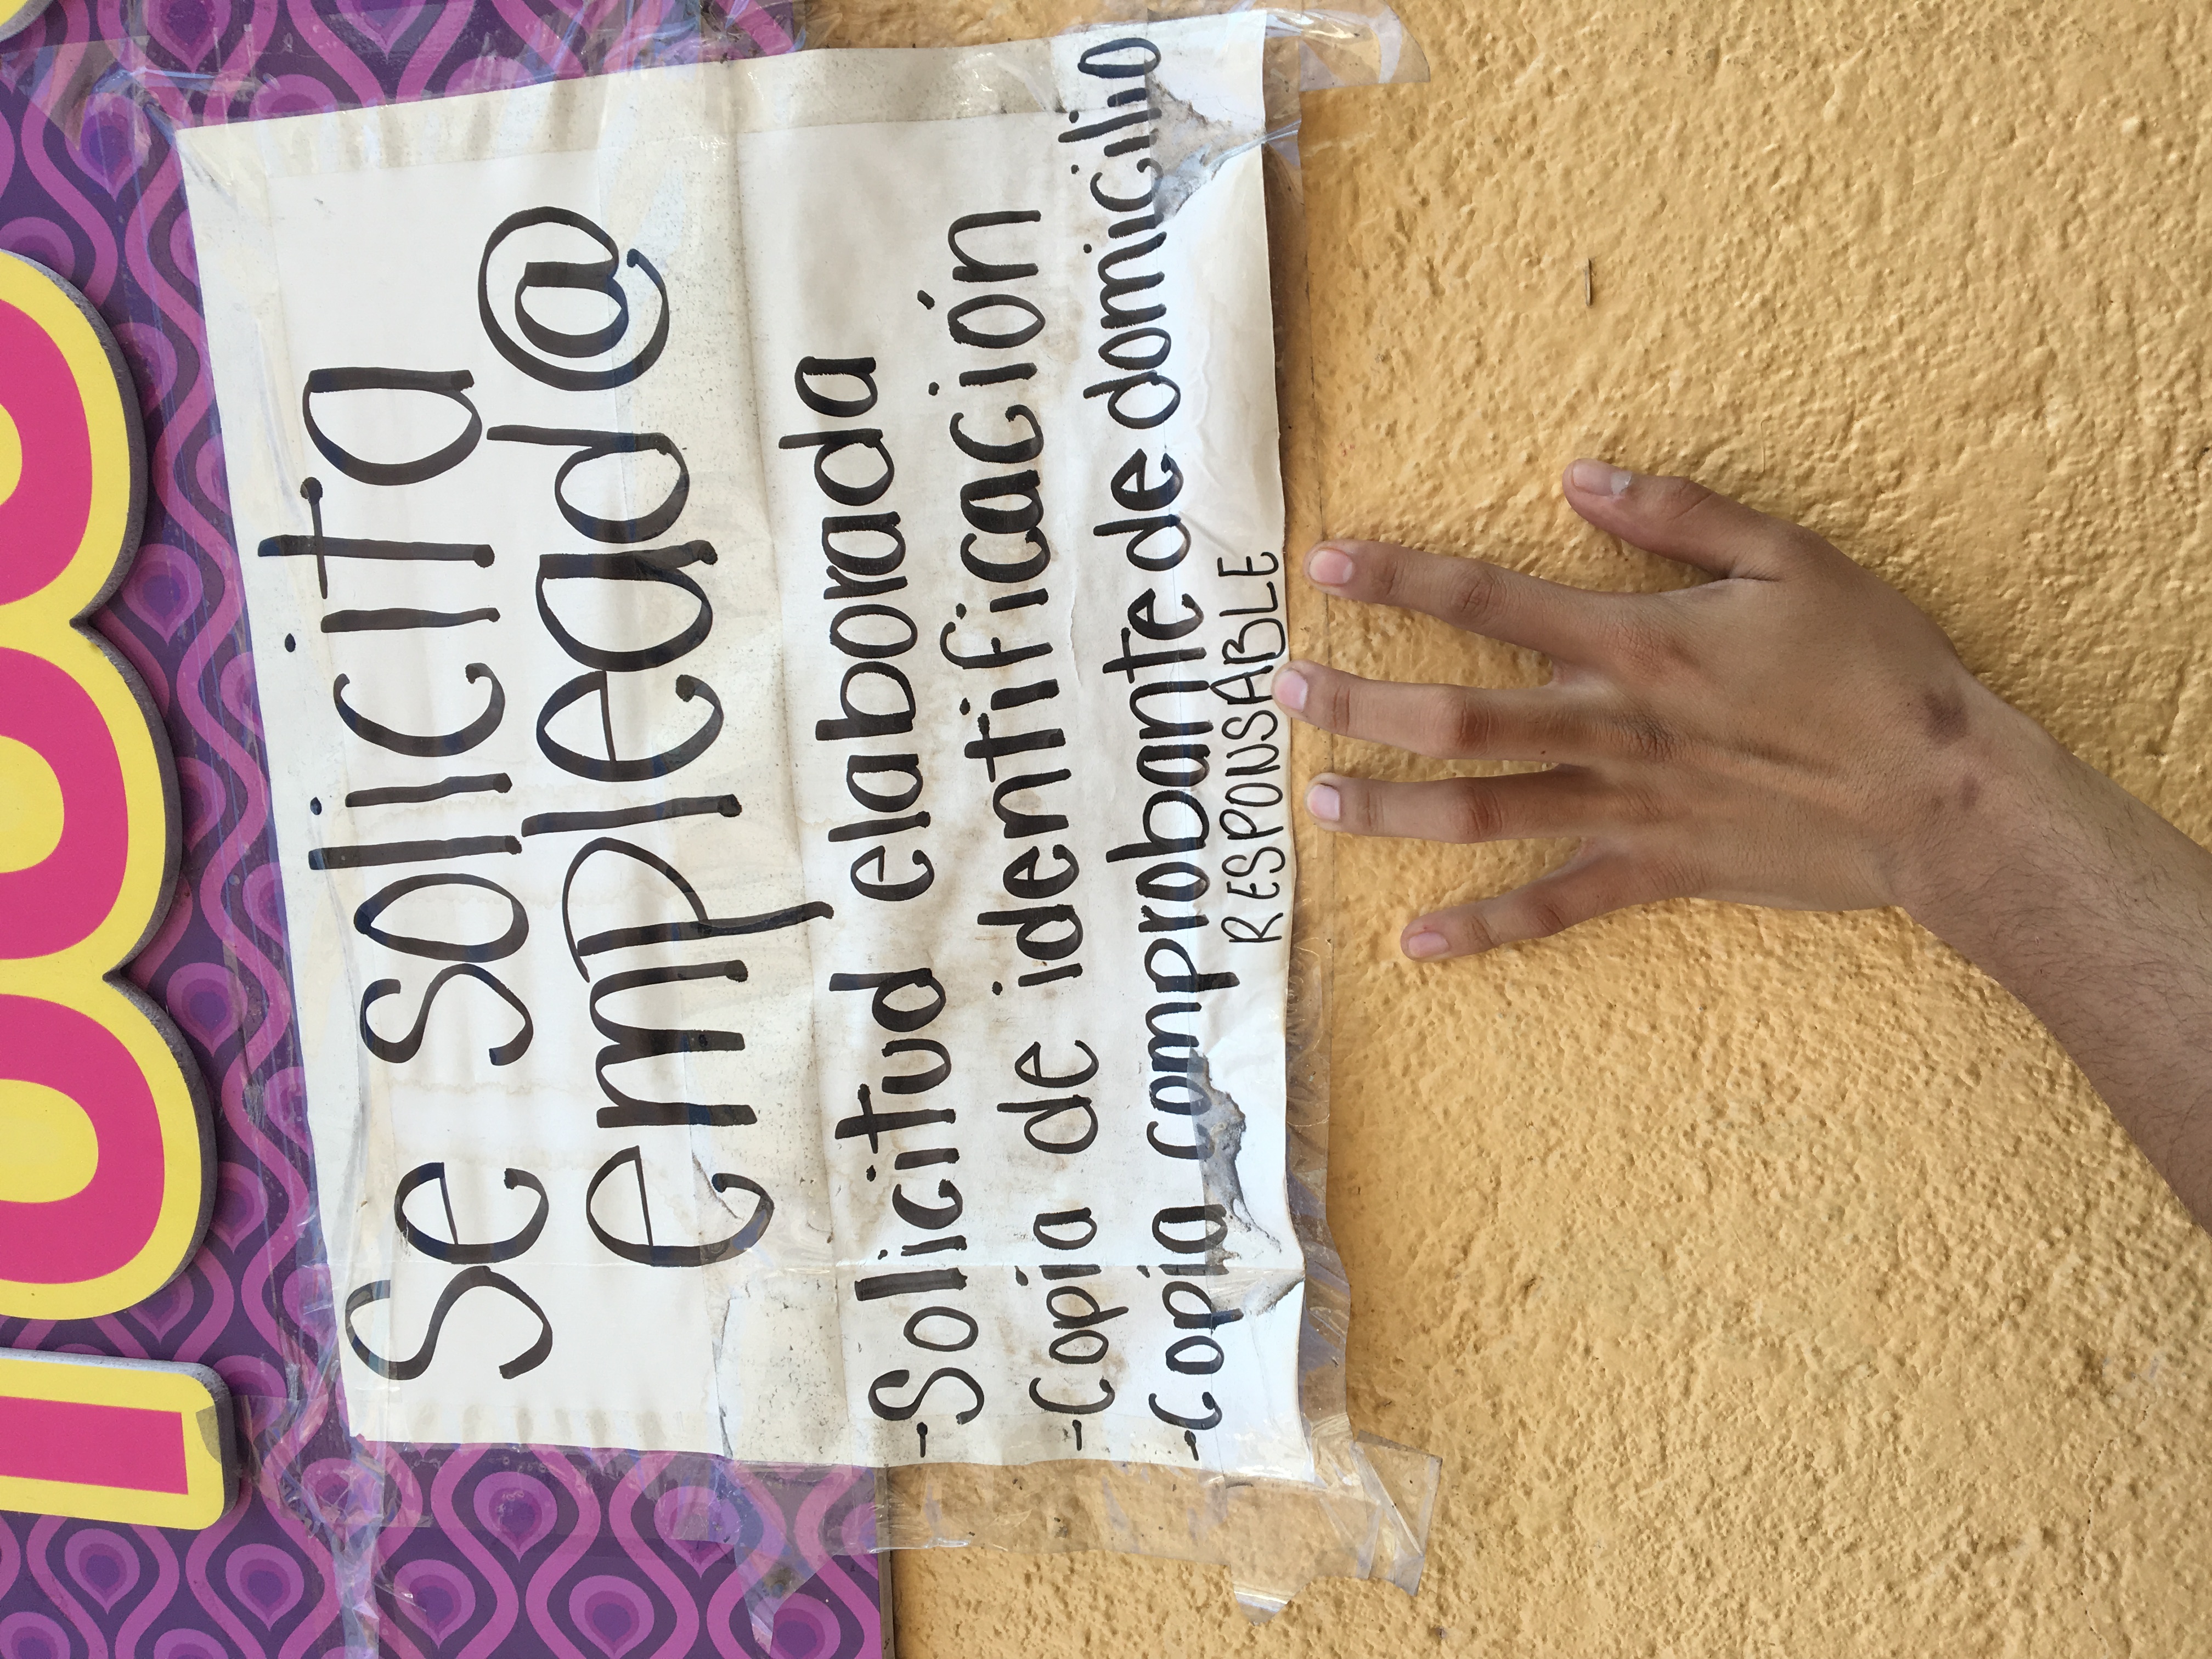 Se solicita
emplead@
-Solicitud elaborada
-Copia de identificación
-Copia comprobante de domicilio
RESPONSABLE